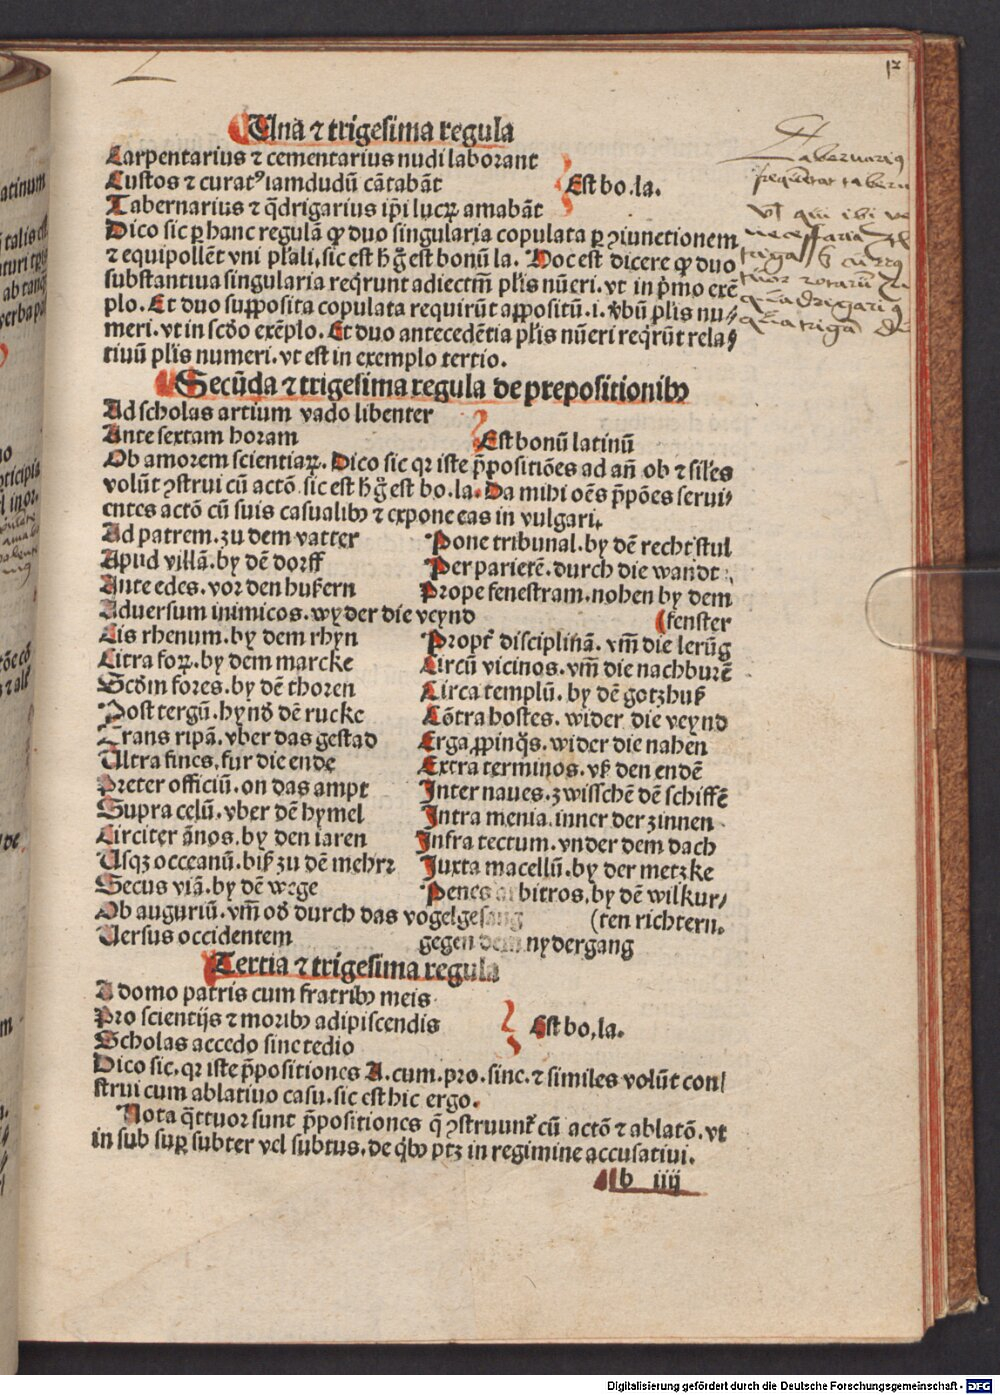 Una ⁊ trigesima regula
Carpentarius ⁊ cementarius nudi laborant
Custos ⁊ curatꝰ iamdudū cātabāt
Est bo. la.
Tabernarius ⁊ q̄drigarius ip̄i lucꝝ amabāt
Dico sic ꝑ hanc regulā ꝙ duo singularia copulata ꝑ ↄiunctionem
⁊ equipollēt vni pl̄ali, sic est h̄ ḡ est bonū la. Hoc est dicere ꝙ duo
substantiua singularia reqͥrunt adiectm̄ pl̄is nūeri. vt in p̄mo exē
plo. Et duo supposita copulata requirūt appositū .i. v̄bū pl̄is nu⸗
meri. vt in scd̄o exēplo. Et duo antecedētia pl̄is nūeri reqͥrūt rela⸗
tiuū pl̄is numeri. vt est in exemplo tertio.
Secūda ⁊ trigesima regula de prepositionibꝰ
Ad scholas artium vado libenter
Ante sextam horam
Est bonū latinū
Ob amorem scientiaꝝ. Dico sic qꝛ iste p̄positiōes ad añ ob ⁊ sil̄es
volūt ↄstrui cū actō. sic est h̄ ḡ est bo. la. Da mihi oēs p̄pōes serui⸗
entes actō cū suis casualibꝰ ⁊ expone eas in vulgari.
Ad patrem. zu dem vatter
Apud villā. by dē dorff
Ante edes. vor den hußern
Aduersum inimicos. wyder die veynd
Cis rhenum. by dem rhyn
Citra foꝝ. by dem marcke
Scd̄m fores. by dē thoren
Post tergū. hynd̄ dē rucke
Trans ripā. vber das gestad
Ultra fines. fur die ende
Preter officiū. on das ampt
Supra celū. vber dē hymel
Circiter ānos. by den iaren
Usqꝫ occeanū. biß zu dē mehre
Secus viā. by dē wege
Ob auguriū. vm̄ od̄ durch das vogelgesang
Uersus occidentem
Pone tribunal. by dē rechtstul
Per parietē. durch die wandt
Prope fenestram. nohen by dem
(fenster
Propt̄ disciplinā. vm̄ die lerūg
Circū vicinos. vm̄ die nachburē
Circa templū. by dē gotzhuß
Cōtra hostes. wider die veynd
Erga ꝓpinq̄s. wider die nahen
Extra terminos. vß den endē
Inter naues. zwisschē dē schiffē
Intra menia. inner der zinnen
Infra tectum. vnder dem dach
Iuxta macellū. by der metzke
Penes arbitros. by dē wilkur⸗
(ten richtern.
gegen dem nydergang
Tertia ⁊ trigesima regula
A domo patris cum fratribꝰ meis
Pro scientijs ⁊ moribꝰ adipiscendis
Est bo. la.
Scholas accedo sine tedio
Dico sic. qꝛ iste p̄positiones A. cum. pro. sine. ⁊ similes volūt con⸗
strui cum ablatiuo casu. sic est hic ergo.
Nota q̄ttuor sunt p̄positiones q̄ ↄstruunt̄ cū actō ⁊ ablatō. vt
in sub suꝑ subter vel subtus. de q̄bꝰ ptꝫ in regimine accusatiui.
b iiij
Tabernariꝰ
Digitalisierung gefördert durch die Deutsche Forschungsgemeinschaft - DFG